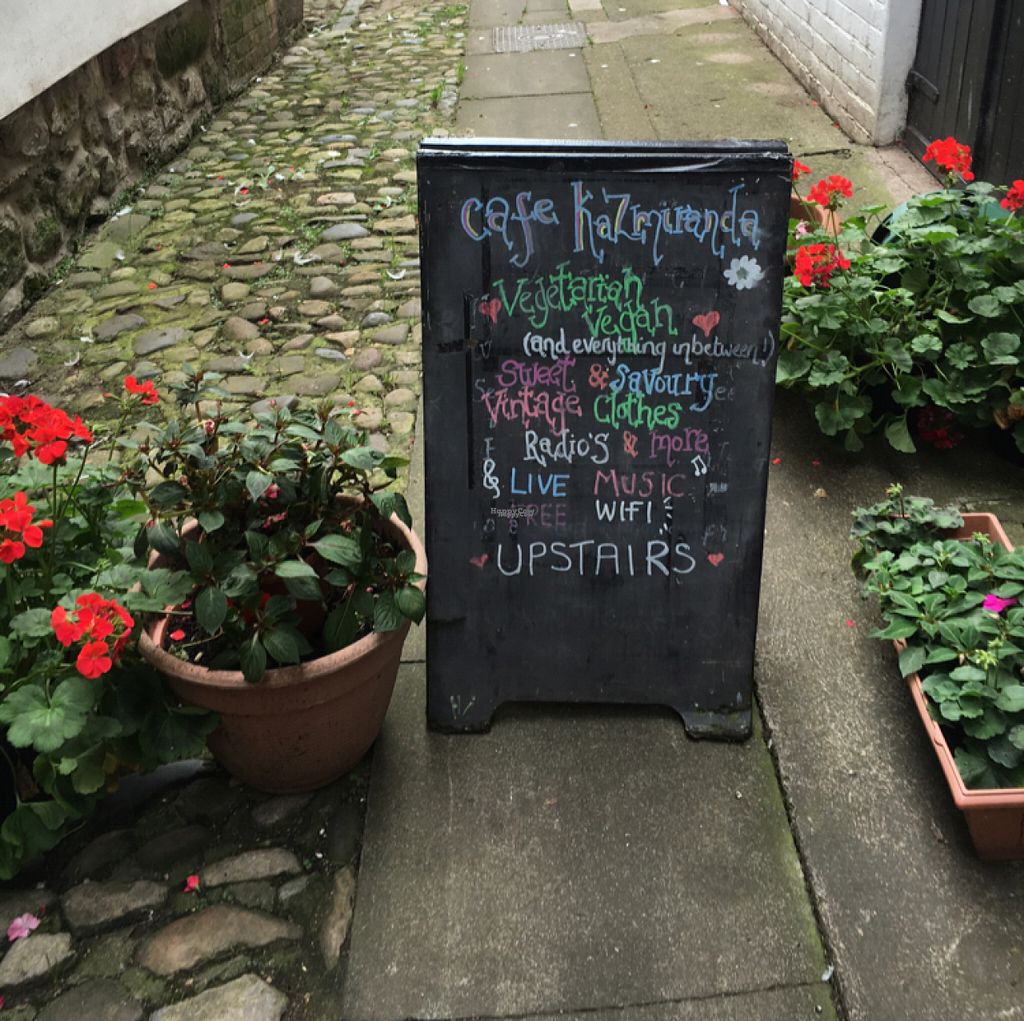 Cafe Kazmiranda
Vegetarian
Vegan
(and everything inbetween!)
Sweet & Savoury
Vintage Clothes
Radio's & more
& LIVE MUSIC
FREE WIFI
UPSTAIRS